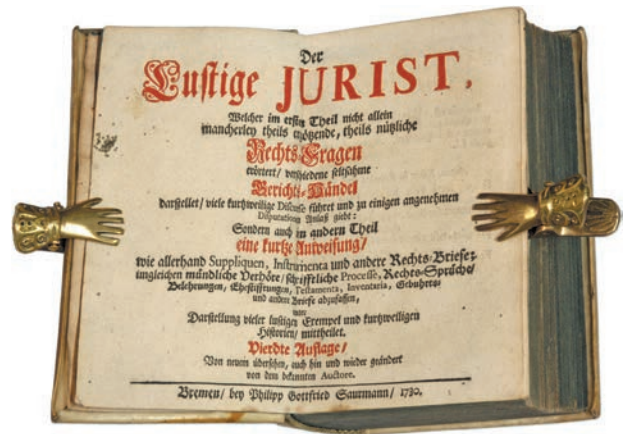 Der
Lustige JURIST,
Welcher im ersten Theil nicht allein
mancherley theils ergötzende, theils nützliche
Rechts-Fragen
erörtert/ verschiedene seltsahme
Gerichts-Händel
darstellet/ viele kurtzweilige Discurse führet und zu einigen angenehmen
Disputationen Anlaß giebt:
Sondern auch in andern Theil
eine kurtze Anweisung/
wie allerhand Suppliquen, Instrumenta und andere Rechts-Briefe;
imgleichen mündliche Verhöre/ schrifftliche Processe, Rechts-Sprüche/
Belehrungen, Ehestifftungen, Testamenta, Inventaria, Geburths-
und andere Briefe abzufassen,
Darstellung vieler lustigen Exempel und kurtzweiligen
Historien/ mittheilet.
Vierdte Auflage/
Von neuem übersehen, auch hin und wieder geändert
von dem bekannten Auctore.
Bremen/ bey Philipp Gottfried Saurmann/ 1730.